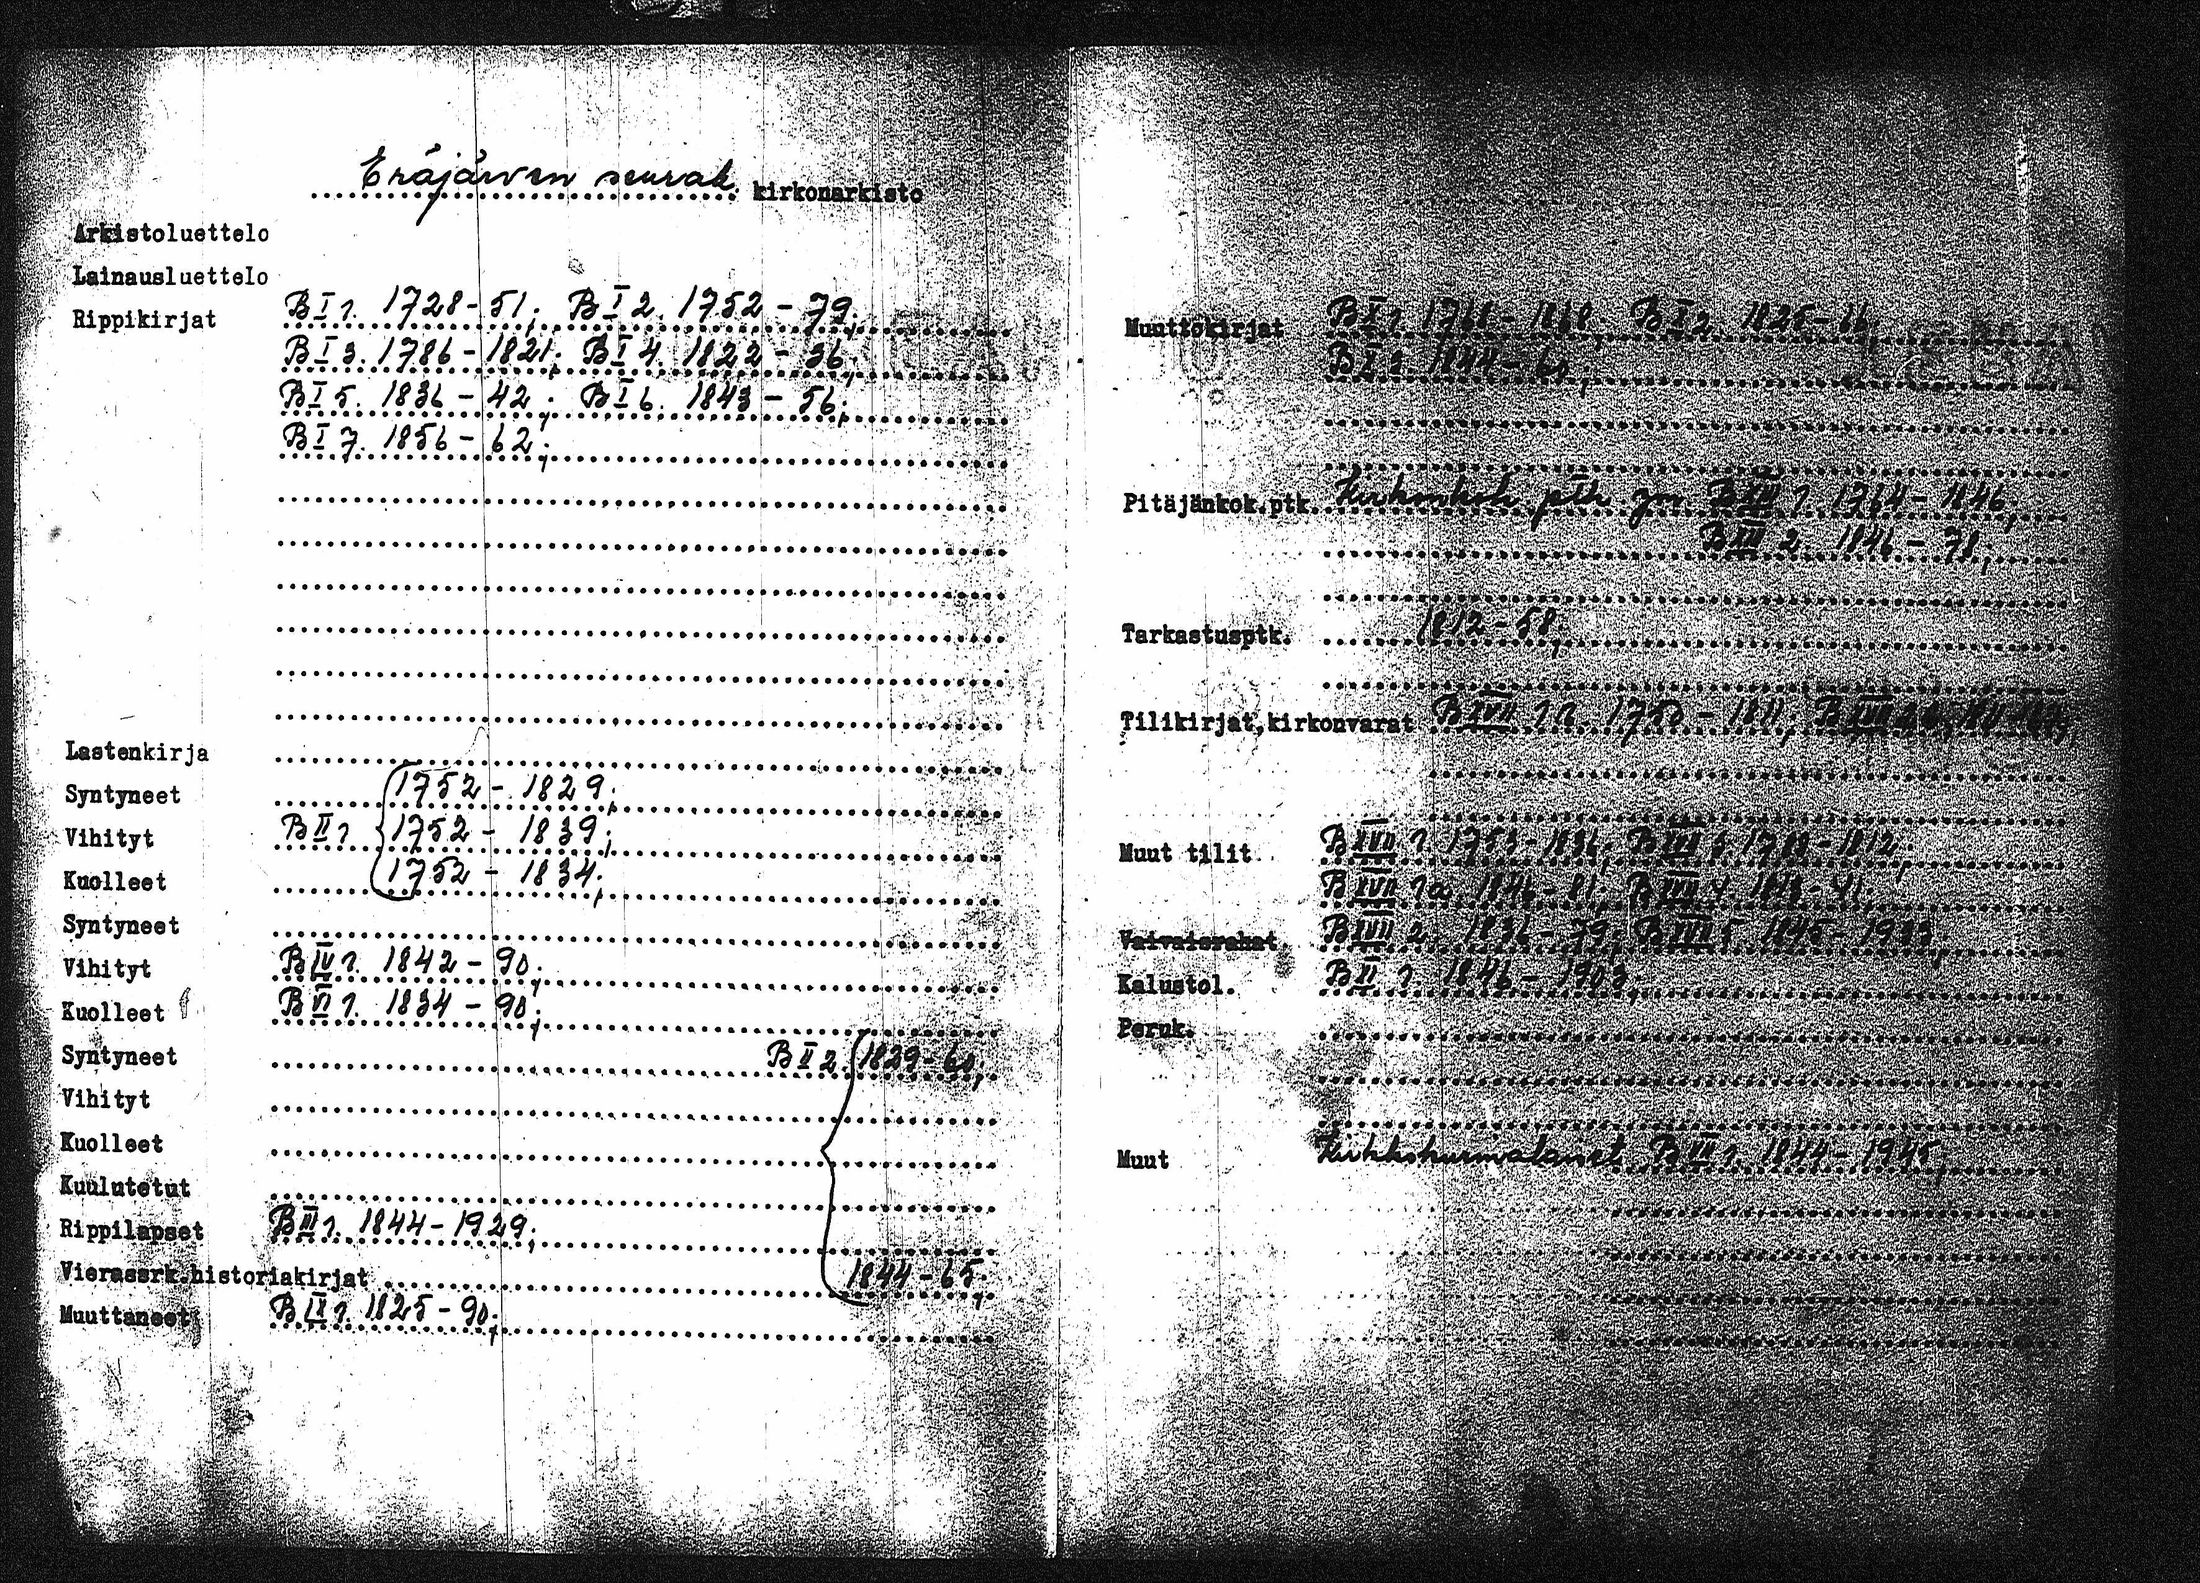 Eräjärven seurak. kirkonarkisto
Arkistoluettelo
Lainausluettelo
Rippikirjat B I 1. 1728-51; B I 2. 1752-79;
B I 3. 1786-1821; B I 4. 1822-36;
B I 5. 1836-42; B I 6. 1843-56;
B I 7. 1856-62;
Lastenkirja
Syntyneet 1752-1829;
Vihityt B II 1. 1752-1839;
Kuolleet 1752-1834;
Syntyneet
Vihityt B IV 1. 1842-90;
Kuolleet B VI 1. 1834-90;
Syntyneet B II 2. 1829-60;
Vihityt
Kuolleet
Kuulutetut
Rippilapset B III 1. 1844-1929;
Vierassrk.historiakirjat 1844-65;
Muuttaneet B IX 1. 1825-90;
Muuttokirjat B X 1. 1768-1868; B X 2. 1825-66;
B X 3. 1844-60;
Pitäjänkok.ptk. Kirkonkok. ptk. ym. B XIII 1. 1764-1846,
B XIII 2. 1846-78;
Tarkastusptk. 1812-58;
Tilikirjat,kirkonvarat B XVII 1 1. 1750-1811; B XVII
Muut tilit B XVII 1. 1753-1836; B XVII 3. 1789-1812;
B XVII 1a. 1846-81; B XVII 4. 1813-41;
Vaivaisrahat B XVII 2. 1836-79; B XVII 5. 1845-1933;
Kalustol. 1. 1846-1903;
Peruk.
Muut Kirkkokurinalaiset 1. 1844-1945;